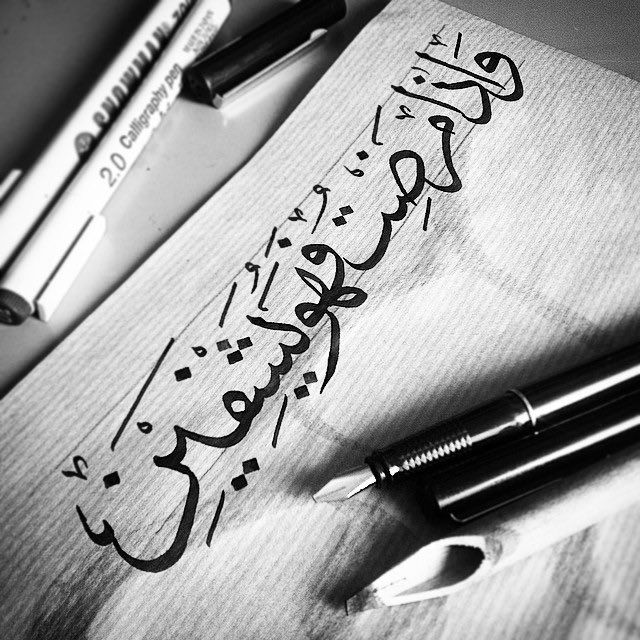 SNOWMAN
2.0 Calligraphy pen
وَإِذَا مَرِضْتُ فَهُوَ يَشْفِينِ